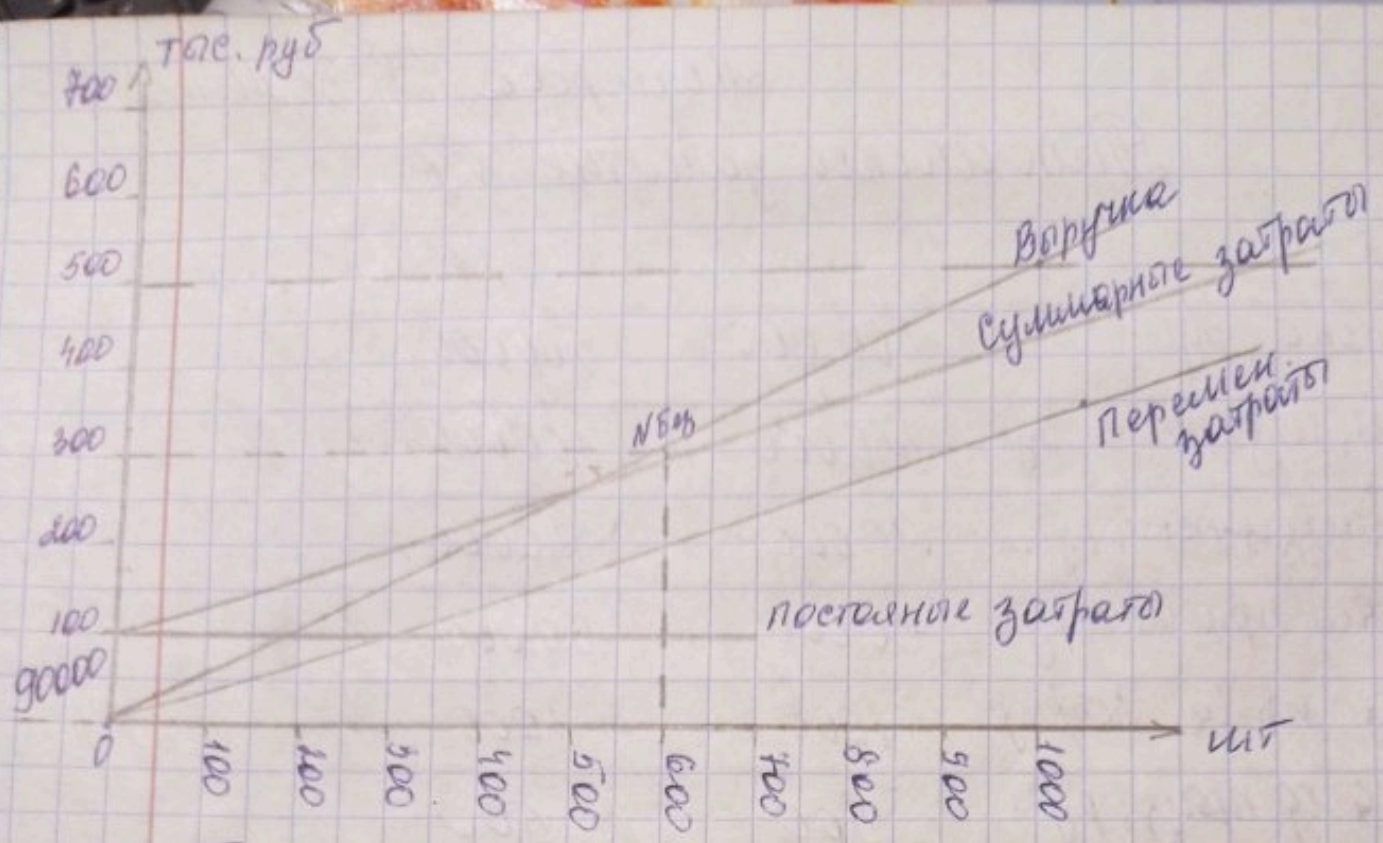 тыс. руб
700
600
500
400
300
200
100
90000
0
Выручка
Суммарные затраты
Перемен.
затраты
Nбез
постояные затраты
100
200
300
400
500
600
700
800
900
1000
шт